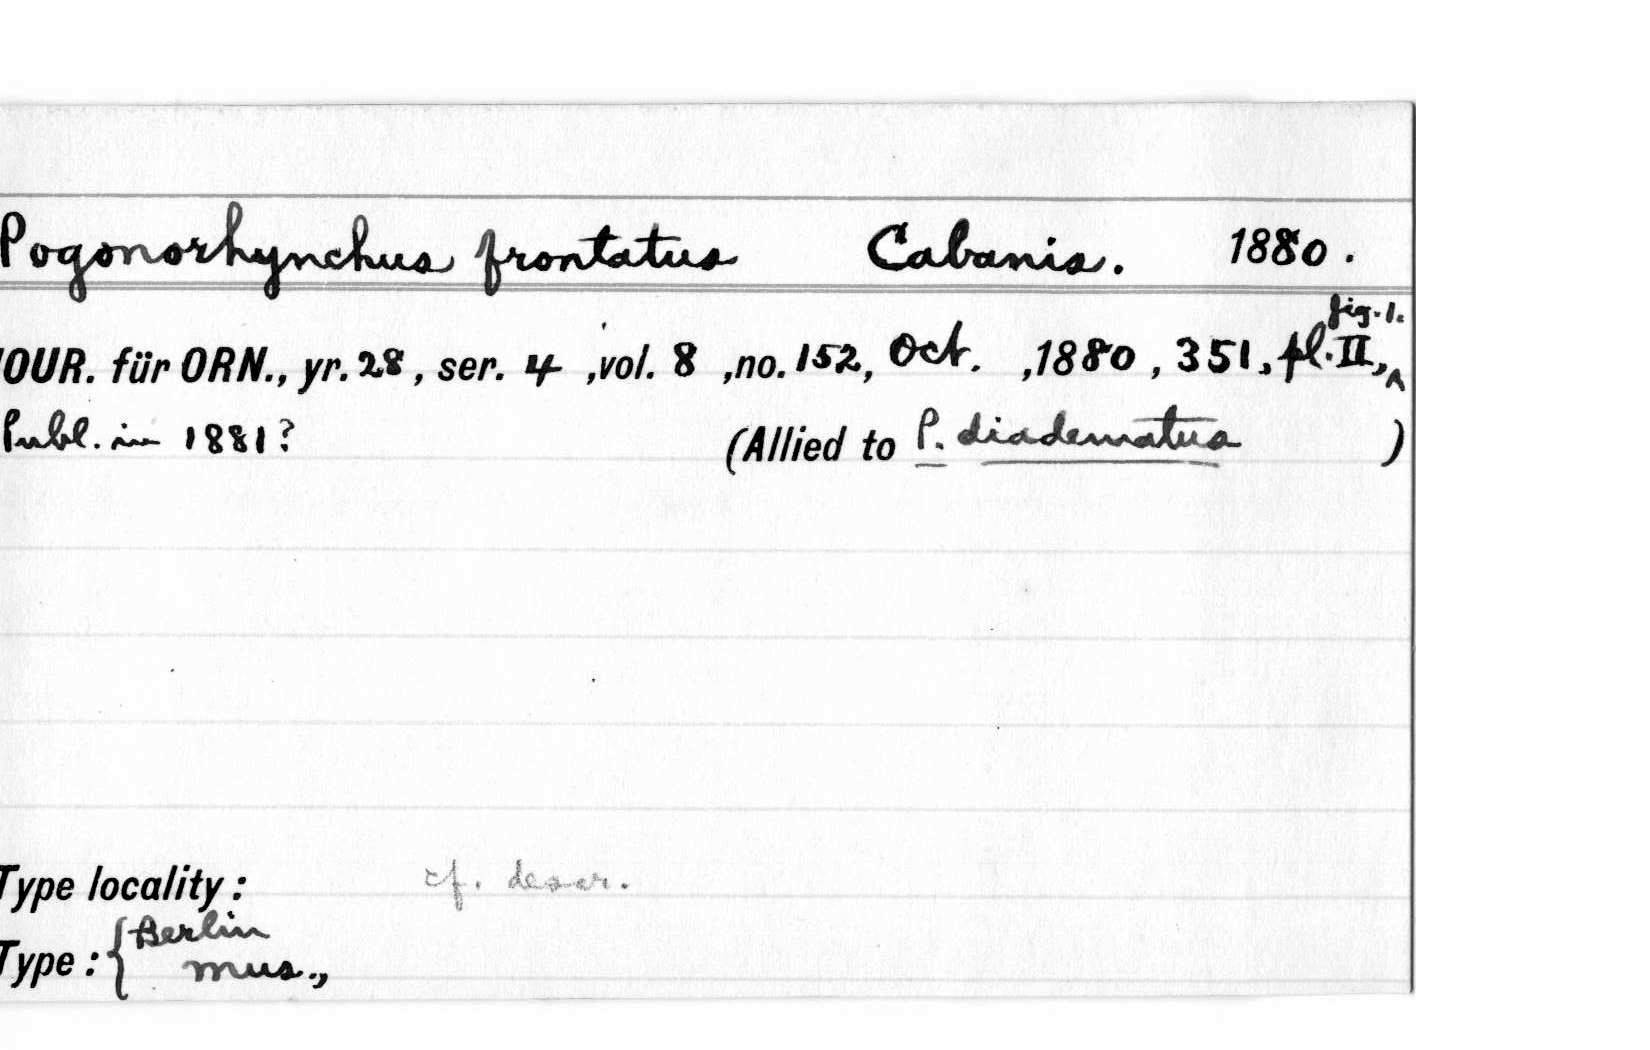 Pogonorhynchus frontatus Cabanis. 1880.
fig. 1.
JOUR. für ORN., yr. 28, ser. 4, vol. 8, no. 152, Oct., 1880, 351, pl. II, ^
Publ. in 1881?
(Allied to P. diadematus)
Type locality: cf. descr.
Type: { Berlin
mus.,